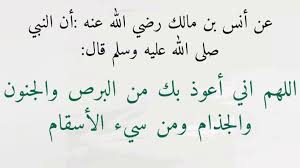 عن أنس بن مالك رضي الله عنه :أن النبي
صلى الله عليه وسلم قال:
اللهم اني أعوذ بك من البرص والجنون
والجذام ومن سيء الأسقام